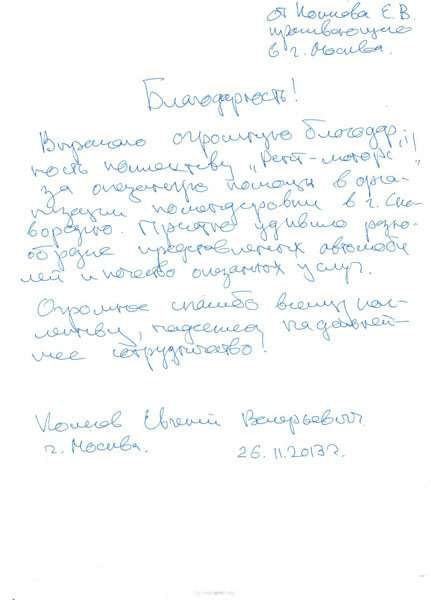 от Колкова Е.В.
проживающего
в г. Москва.
Благодарность!
Выражаю огромную благодар-
ность коллективу „Рент-моторс"
за оказанную помощь в орга-
низации командировки в г. Ско-
вородино. Приятно удивило разно-
образие представленных автомоби
лей и качество оказанных услуг.
Огромное спасибо всему кол-
лективу, надеемся на дальней-
шее сотрудничество!
Евгений Валерьевич
г. Москва. 26.11.2013г.